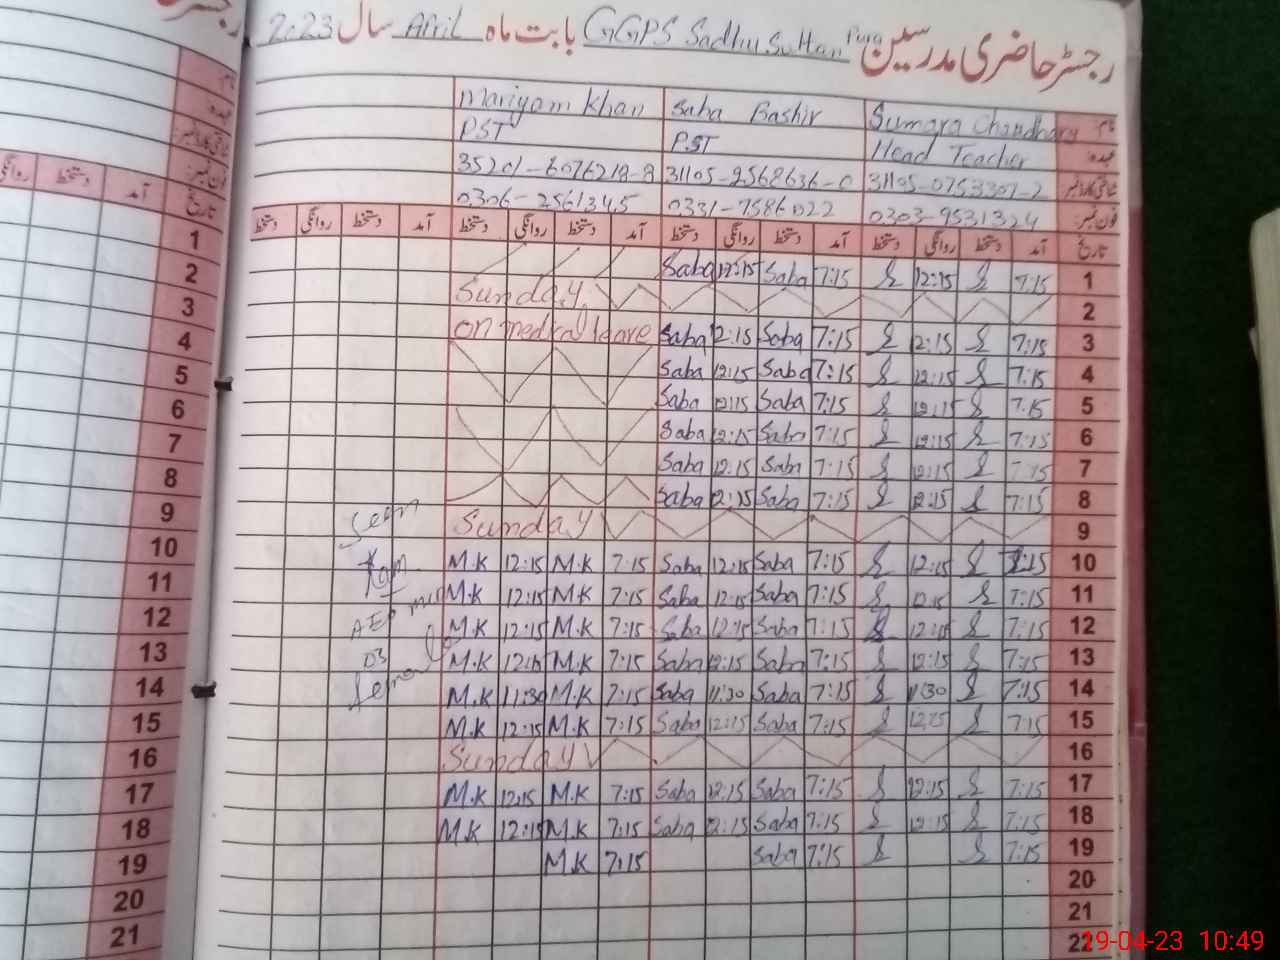 رجسٹر حاضری مدرسین GGPS Sadhu Sultan Pura بابت ماہ April سال 2023
نام Sumara Chaudhary Saba Bashir Mariyam Khan
عہدہ: Head Teacher PST PST
شناختی کارڈ نمبر: 31105-0753307-2 31105-9568636-0 35201-6076218-8
فون نمبر: 0303-9531324 0331-7586022 0306-2561345
تاریخ آمد دستخط روانگی دستخط آمد دستخط روانگی دستخط آمد دستخط روانگی دستخط آمد دستخط روانگی دستخط
1 7:15 S 12:15 S 7:15 Saba 12:15 Saba
2 Sunday
3 7:15 S 12:15 S 7:15 Saba 12:15 Saba on medical leave
4 7:15 S 12:15 S 7:15 Saba 12:15 Saba
5 7:15 S 12:15 S 7:15 Saba 12:15 Saba
6 7:15 S 12:15 S 7:15 Saba 12:15 Saba
7 7:15 S 12:15 S 7:15 Saba 12:15 Saba
8 7:15 S 12:15 S 7:15 Saba 12:15 Saba
9 Sunday
10 7:15 S 12:15 S 7:15 Saba 12:15 Saba 7:15 M.K 12:15 M.K
11 7:15 S 12:15 S 7:15 Saba 12:15 Saba 7:15 M.K 12:15 M.K
12 7:15 S 12:15 S 7:15 Saba 12:15 Saba 7:15 M.K 12:15 M.K
13 7:15 S 12:15 S 7:15 Saba 12:15 Saba 7:15 M.K 12:15 M.K
14 7:15 S 11:30 S 7:15 Saba 11:30 Saba 7:15 M.K 11:30 M.K
15 7:15 S 12:15 S 7:15 Saba 12:15 Saba 7:15 M.K 12:15 M.K
16 Sunday
17 7:15 S 12:15 S 7:15 Saba 12:15 Saba 7:15 M.K 12:15 M.K
18 7:15 S 12:15 S 7:15 Saba 12:15 Saba 7:15 M.K 12:15 M.K
19 7:15 S S 7:15 Saba 7:15 M.K
20
21
22
Seen
AEO
03
رجسٹر
نام
عہدہ:
شناختی کارڈ نمبر:
فون نمبر:
تاریخ آمد دستخط روانگی
1
2
3
4
5
6
7
8
9
10
11
12
13
14
15
16
17
18
19
20
21
19-04-23 10:49